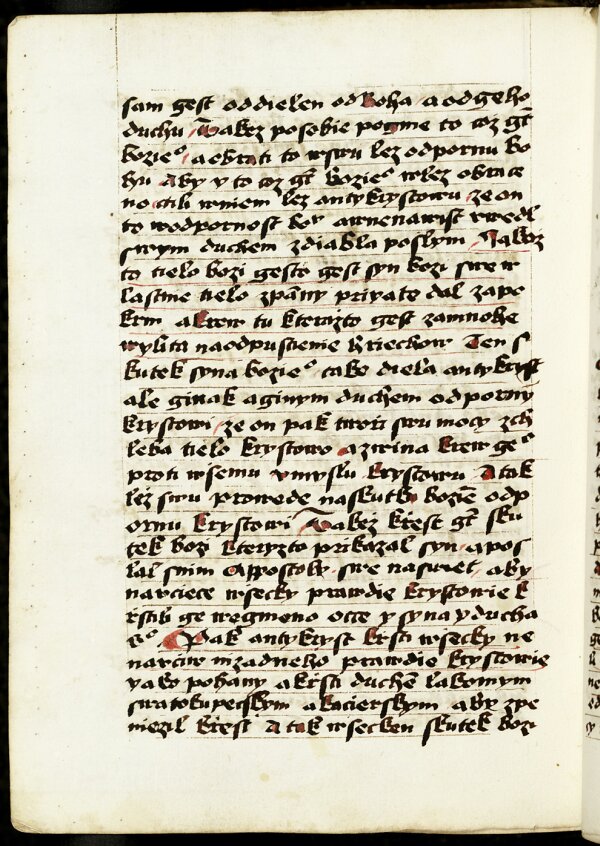 sam gest oddielen odboha / aodgeho
duchu / Takez posobie pogme to coz gt
bozieº / aobrati to wswu lez odpornu bo
hu aby y to coz gt bozieº wlez obrace
no ctili wniem lez antykrystowu / ze on
to wodpornost bohu awnenawist vwedl
swym duchem zdiabla poslym / Jakoz
to tielo bozi gesto gest syn bozi swe w
lastnie tielo zpãny prigate dal zapo
krm akrew tu kterazto gest zamnohe
wylita naodpustienie hriechow Ten s
kutek syna bozieº tako diela antykryst
ale ginak aginym duchem odporny
krystowi / ze on pak tworzi swu mocy zch
leba tielo krystowo azwina krew geº
proti wsemu vmyslu krystowu A tak
lez swu prowede naskutku boziem odp
ornu krystowi Takez krzest gt sku
tek bozi kteryzto prikazal syn apos
lal snim Appostoly swe naswiet / aby
nauciece wsecky prawdie krystowie k
rstili ge wegmeno otce y syna y ducha
sº Pak antykryst krsti wsecky ne
nauciw nizadneho prawdie krystowie
yako pohany akrsti duchem lakomym
swatokupeckym akacierskym aby zpe
niezil krzest A tak wsecken skutek bozi